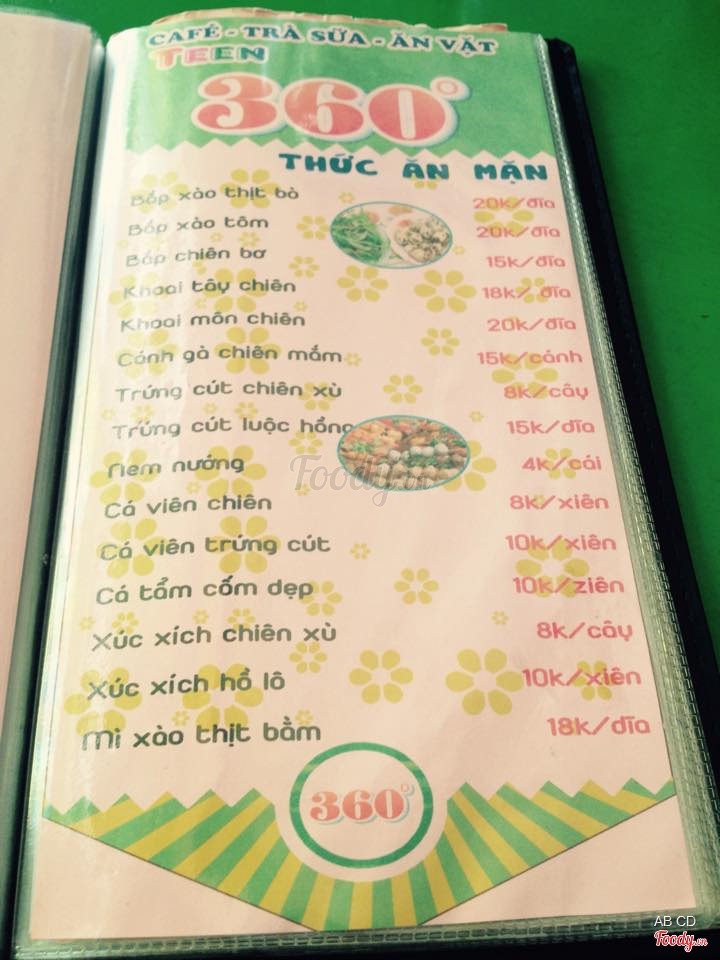 CAFÉ - TRÀ SỮA - ĂN VẶT
TEEN
360°
THỨC ĂN MẶN
Bắp xào thịt bò 20k/đĩa
Bắp xào tôm 20k/đĩa
Bắp chiên bơ 15k/đĩa
Khoai tây chiên 18k/đĩa
Khoai môn chiên 20k/đĩa
Cánh gà chiên mắm 15k/cánh
Trứng cút chiên xù 8k/cây
Trứng cút luộc hồng 15k/dĩa
Nem nướng 4k/cái
Foody.vn
Cá viên chiên 8k/xiên
Cá viên trứng cút 10k/xiên
Cá tẩm cốm dẹp 10k/ziên
Xúc xích chiên xù 8k/cây
Xúc xích hồ lô 10k/xiên
Mì xào thịt bằm 18k/dĩa
360°
AB CD
Foody.vn